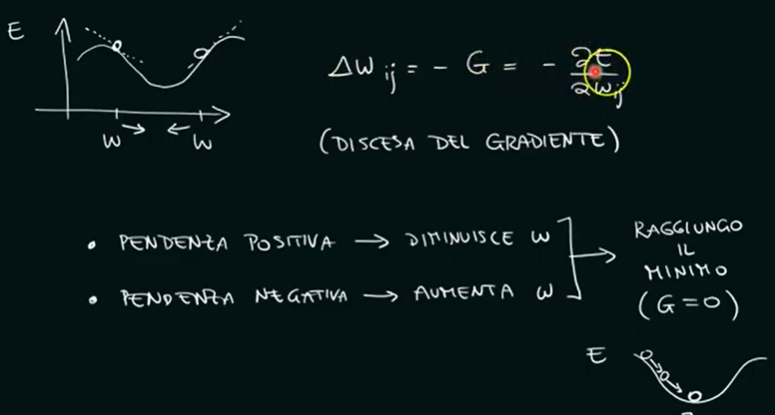 E
Δw ij = - G = - ∂E / ∂w ij
w → ← w
(DISCESA DEL GRADIENTE)
• PENDENZA POSITIVA → DIMINUISCE w
• PENDENZA NEGATIVA → AUMENTA w
RAGGIUNGO
IL
MINIMO
(G=0)
E